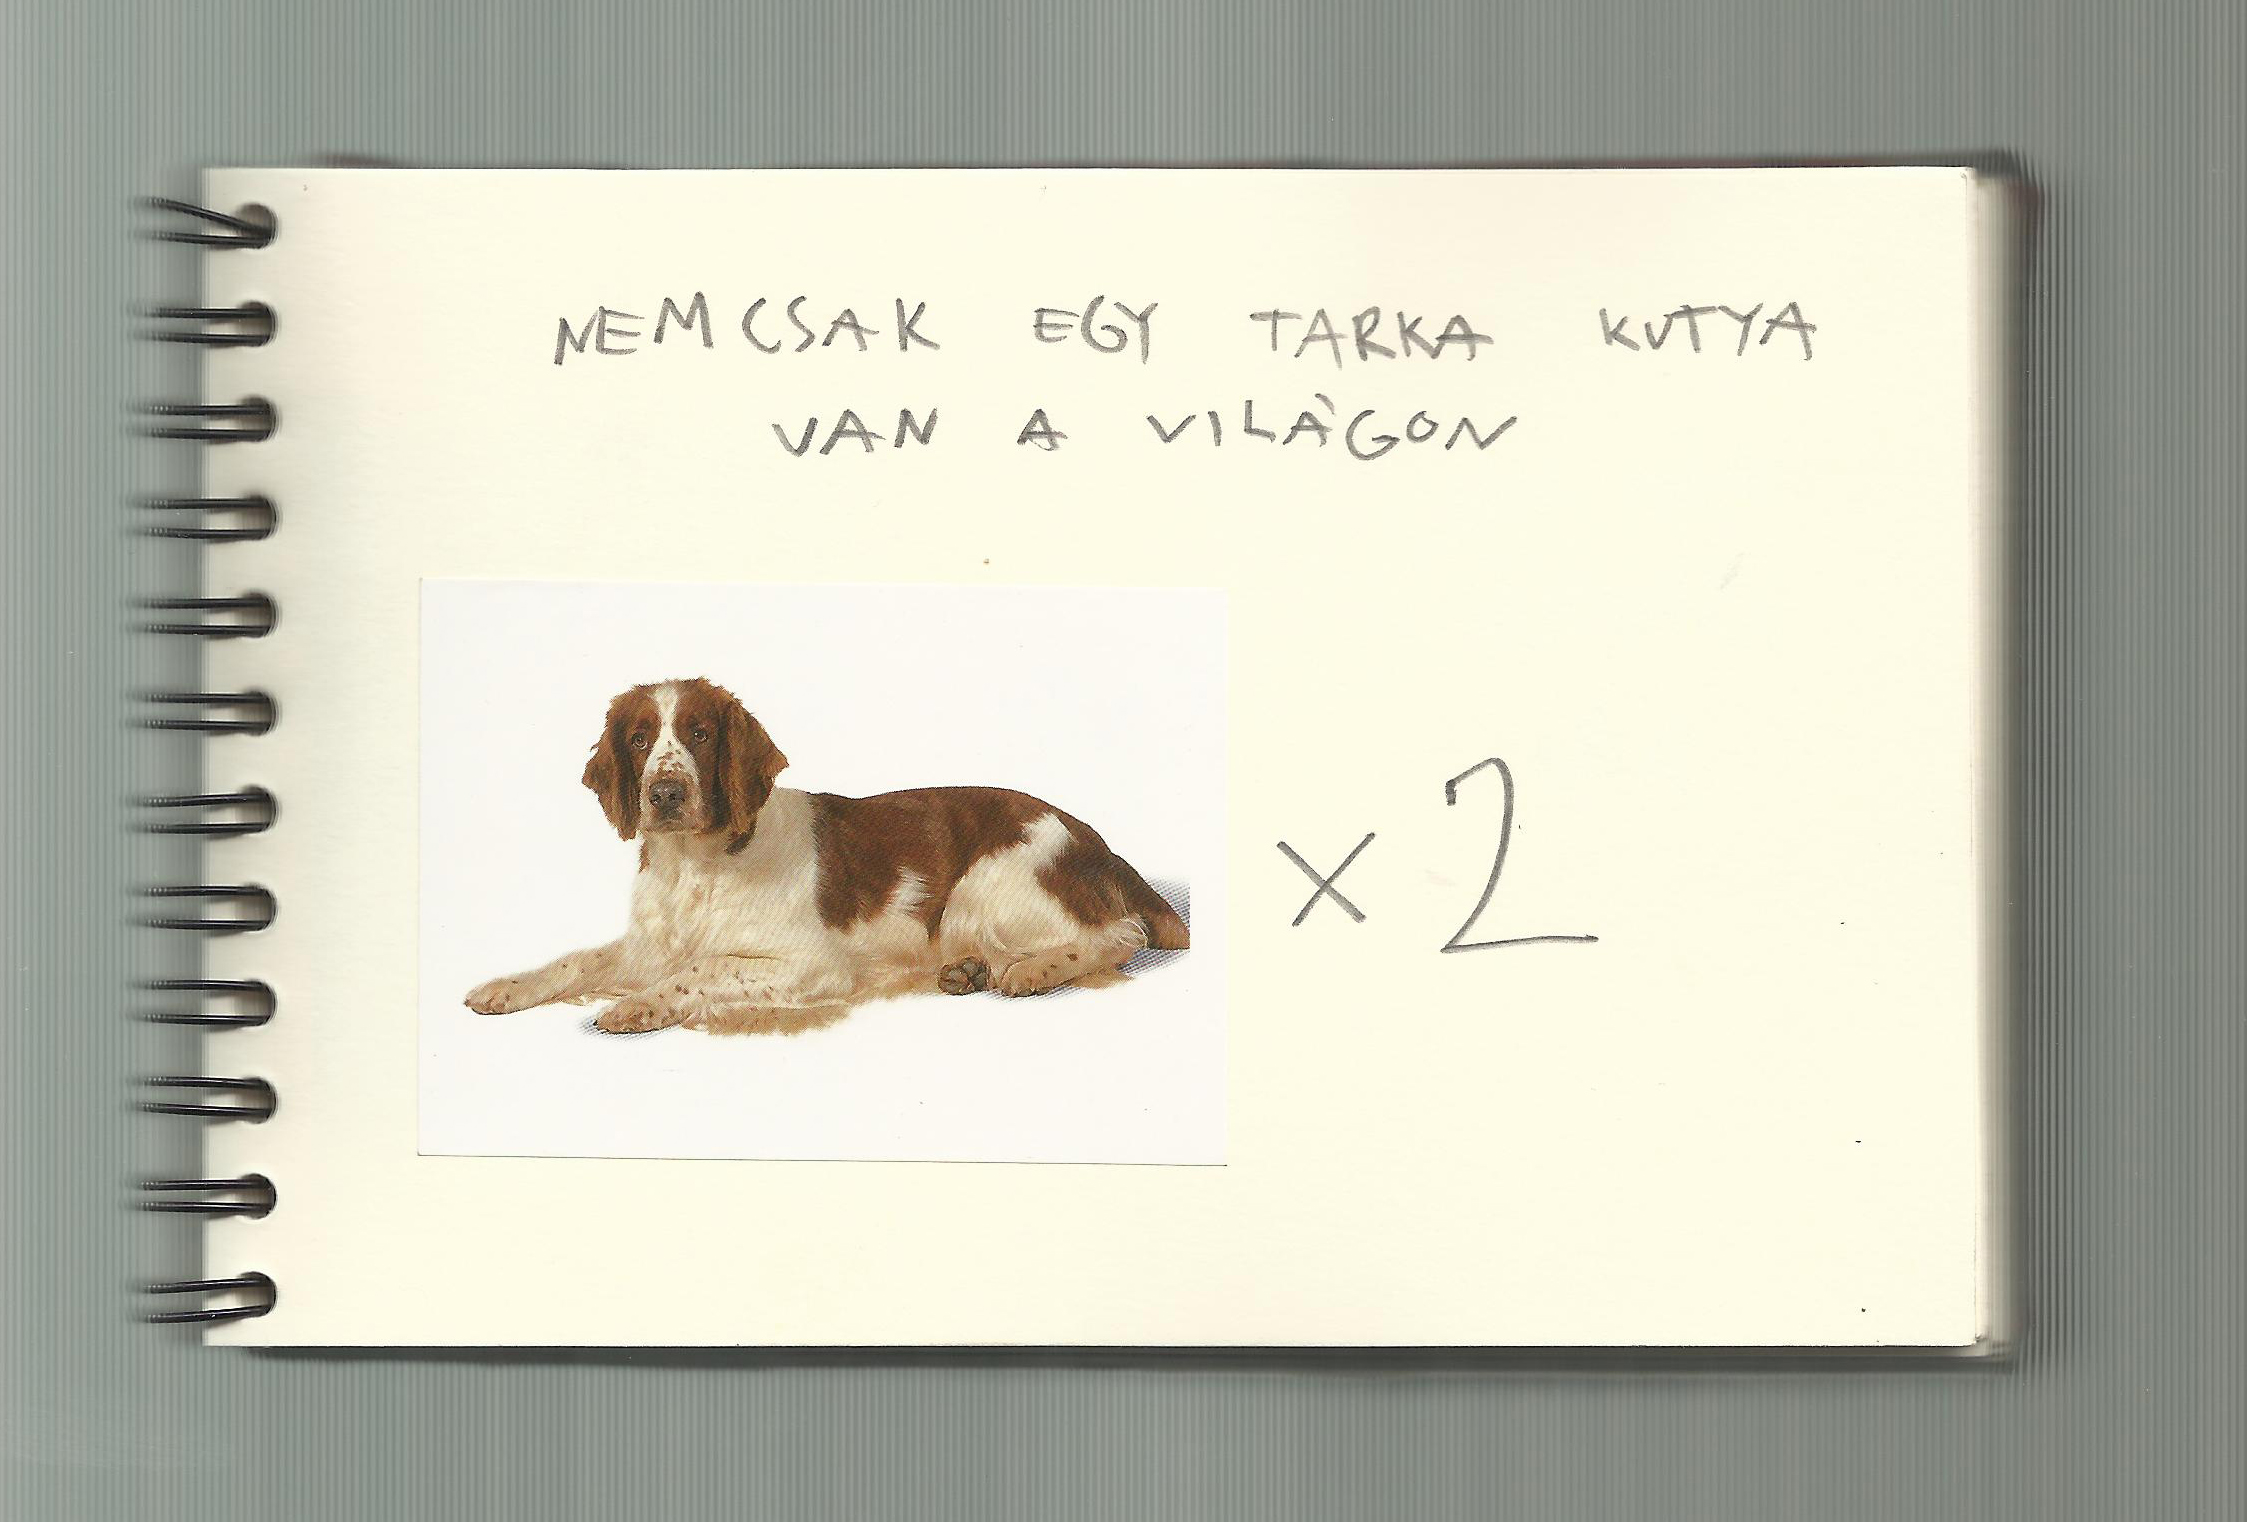 NEMCSAK EGY TARKA KUTYA
VAN A VILÀGON
x 2